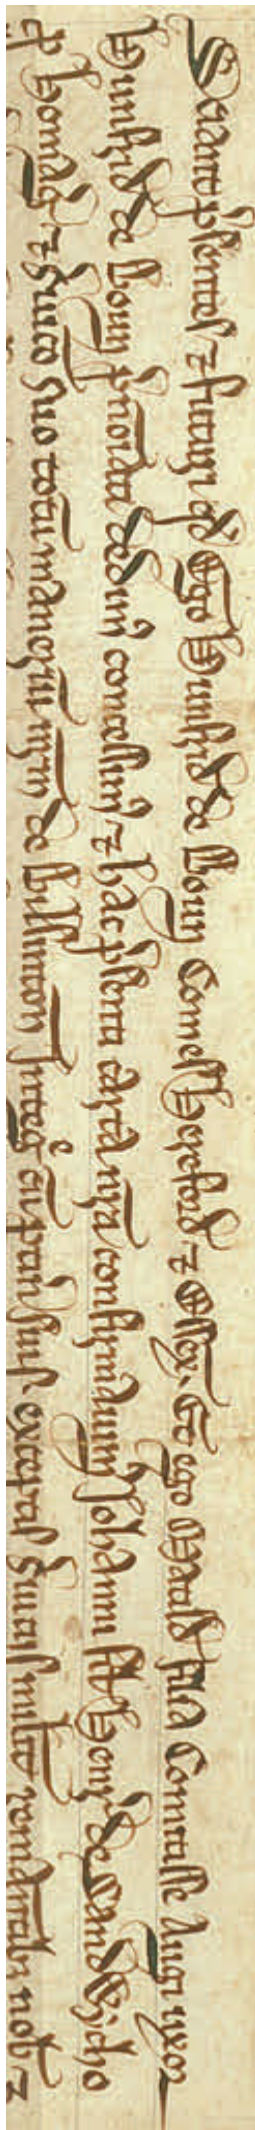 Sciant p̄sentes ⁊ futuri qd̓ Ego Humfrid̓ de Boun Comes Hereford̓ ⁊ Essex̓. Et ego Matild̓ filia Comitisse Augi uxor
Humfrid̓ de Boun p̄notati dedim̓ concessim̓ ⁊ hac p̄senti carta nr̄a confirmauim̓ Johanni fil̓ Henr̓ de
p̱ homag̓ ⁊ s̓uicio suo totū maneriū nr̄m de Billinton̓ Integ̓ cū ptin̓ suis exceptis s̓uiciis milit̓ remditalꝫ nob̓ ⁊